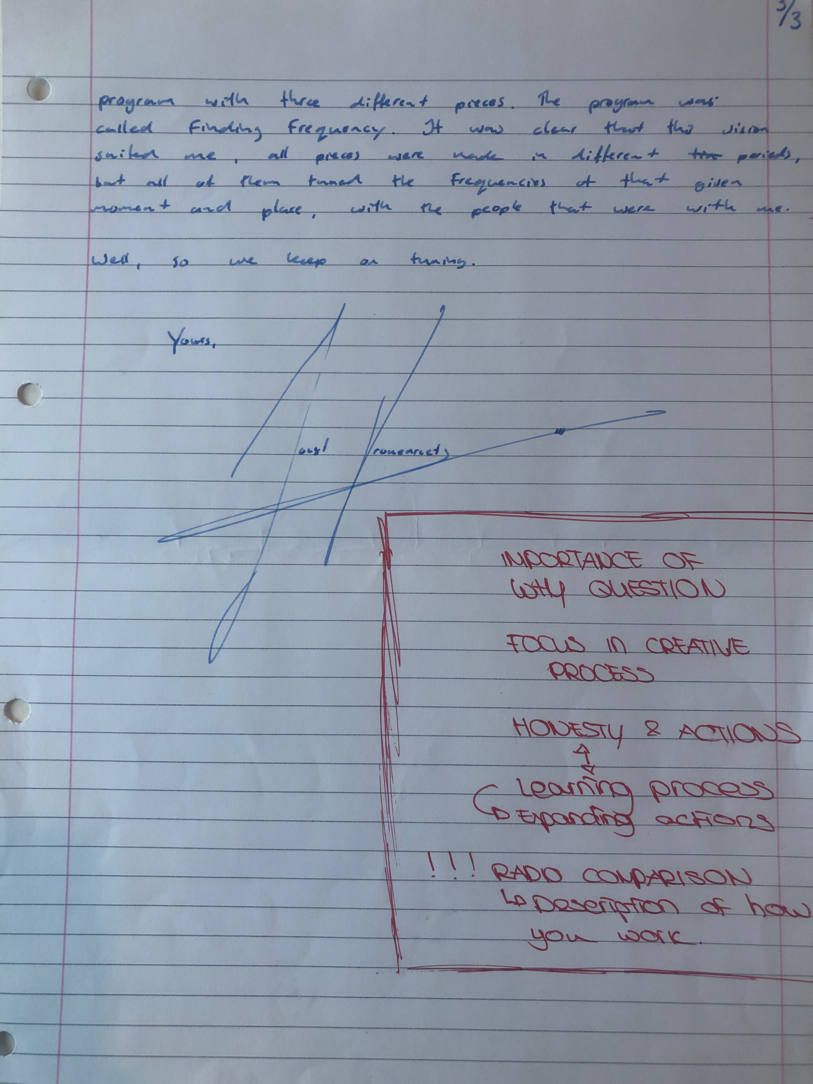 3/3
program with three different pieces. The program was
called Finding Frequency. It was clear that this vision
suited me, all pieces were made in different periods,
but all of them tuned the frequencies of that given
moment and place, with the people that were with me.
Well, so we keep on tuning.
Yours,
IMPORTANCE OF
WHY QUESTION
FOCUS IN CREATIVE
PROCESS
HONESTY & ACTIONS
Learning process
Expanding actions
!!! RADIO COMPARISON
Description of how
you work.